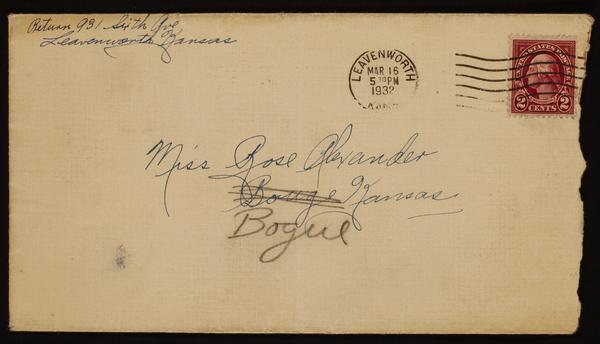 Return 931 Sixth Ave
Leavenworth Kansas
LEAVENWORTH
MAR 16
5 30 PM
1932
KANS.
UNITED STATES POSTAGE
2 CENTS 2
Miss Rose Alexander
Bouge Kansas
Bogue